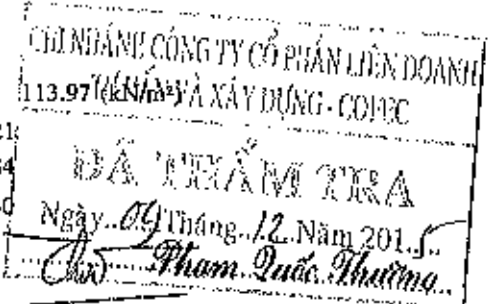 CHI NHÁNH CÔNG TY CỔ PHẦN LIÊN DOANH
113.97 (kN/m²) VÀ XÂY DỰNG - COFEC
21
34
ĐÃ THẨM TRA
Ngày..09 Tháng..12..Năm 201.5..
Phạm Quốc Thường